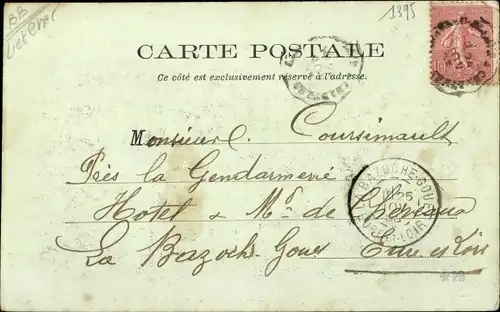 BB
Loir et Cher
1395
CARTE POSTALE
Ce côté est exclusivement réservé à l'adresse.
Monsieur C. Coursimault
Près la Gendarmerie
Hotel & Md de Chevaux
La Bazoche-Gouet Eure et Loir
LA BAZOCHE-GOUET
25
EURE-ET-LOIR